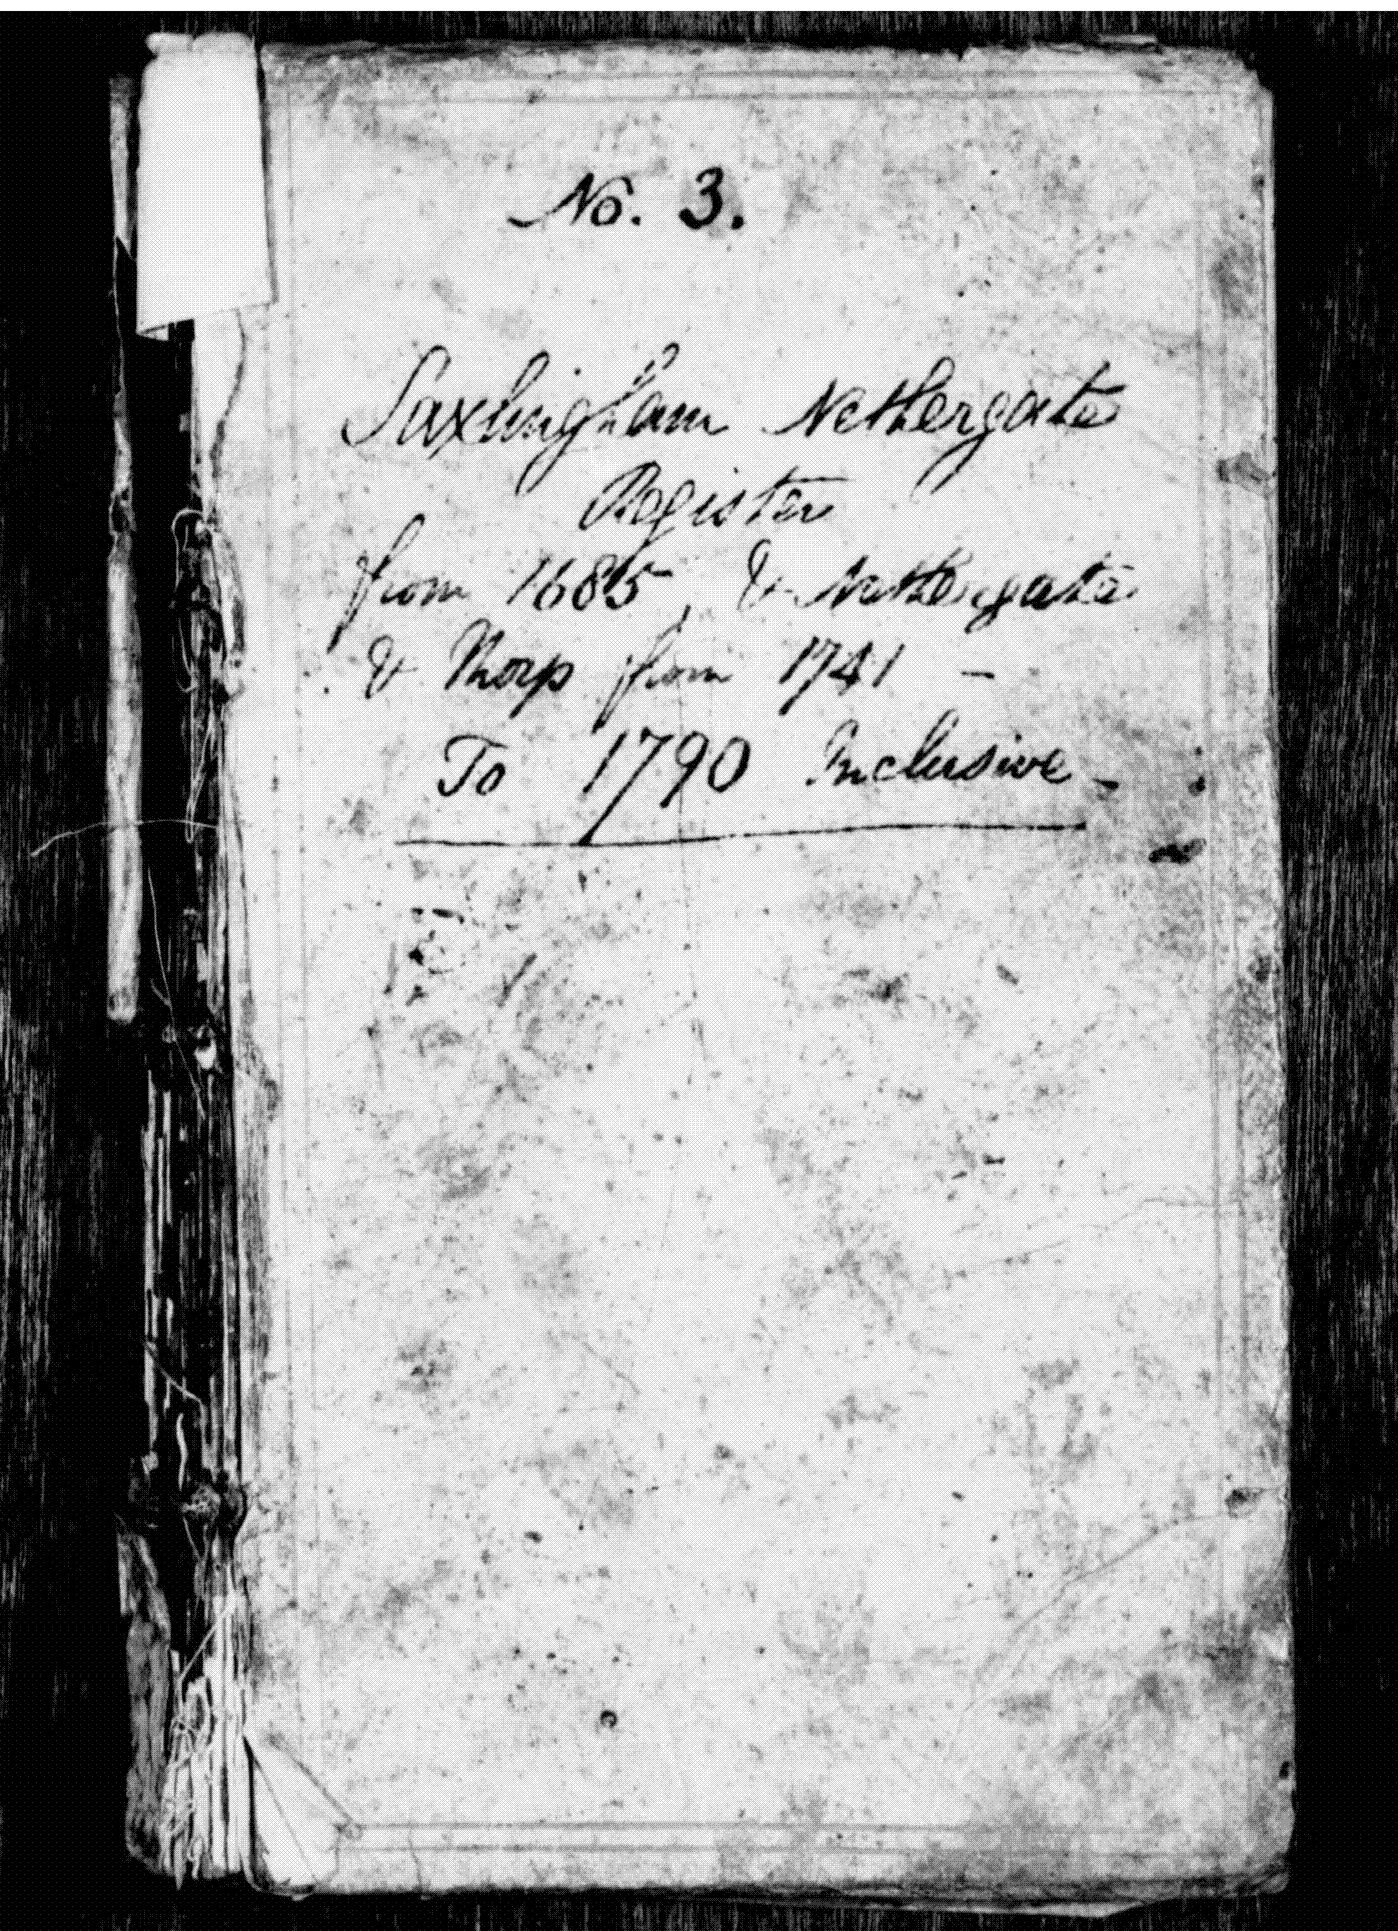 No. 3.
Saxlingham Nethergate
Register
from 1685, & Nethergate
& Thorp from 1741 –
To 1790 Inclusive –